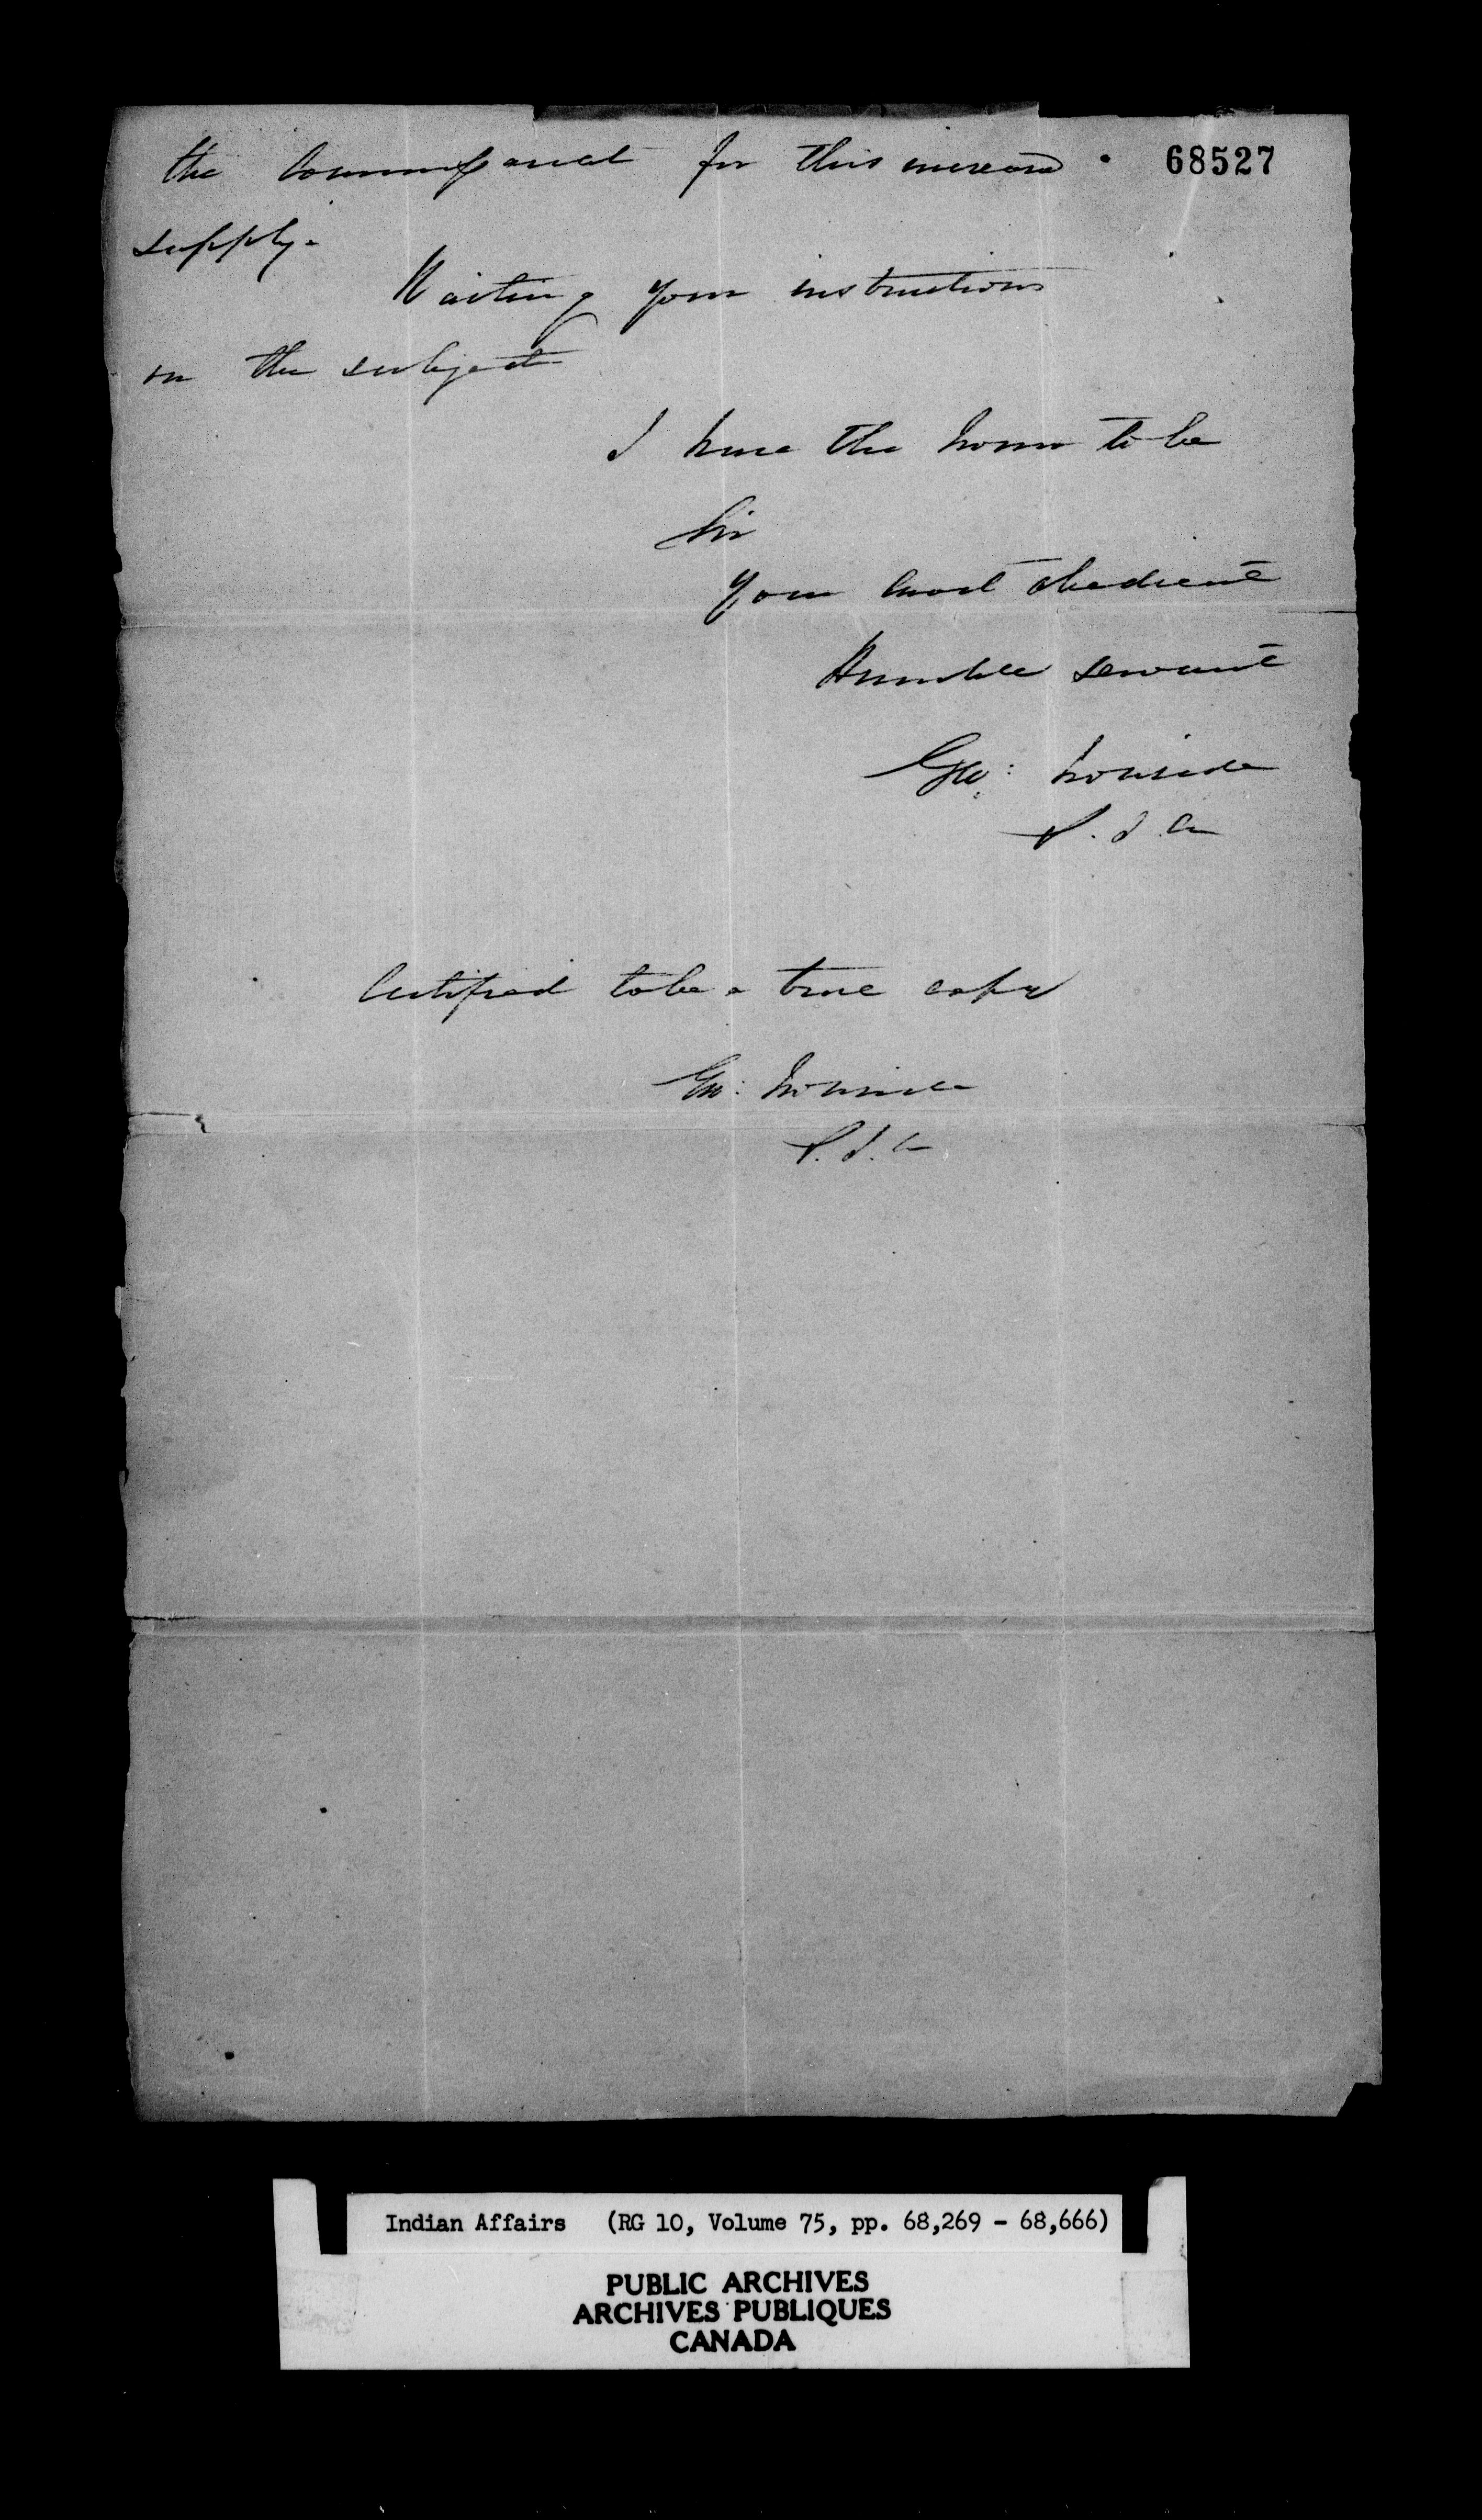 the Commissariat for this increased 68527
supply.
Waiting your instructions
on the subject
I have the honor to be
Sir
Your most obedient
Humble servant
Geo: Ironside
S. I. A
Certified to be a true copy
Geo: Ironside
S. I. A
Indian Affairs (RG 10, Volume 75, pp. 68,269 - 68,666)
PUBLIC ARCHIVES
ARCHIVES PUBLIQUES
CANADA